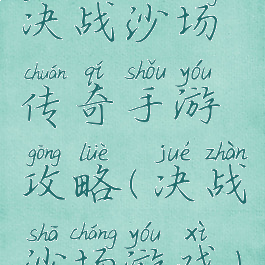 决战沙场
chuán qí shǒu yóu
传奇手游
gōng lüè jué zhàn
攻略(决战
shā cháng yóu xì
沙场游戏)